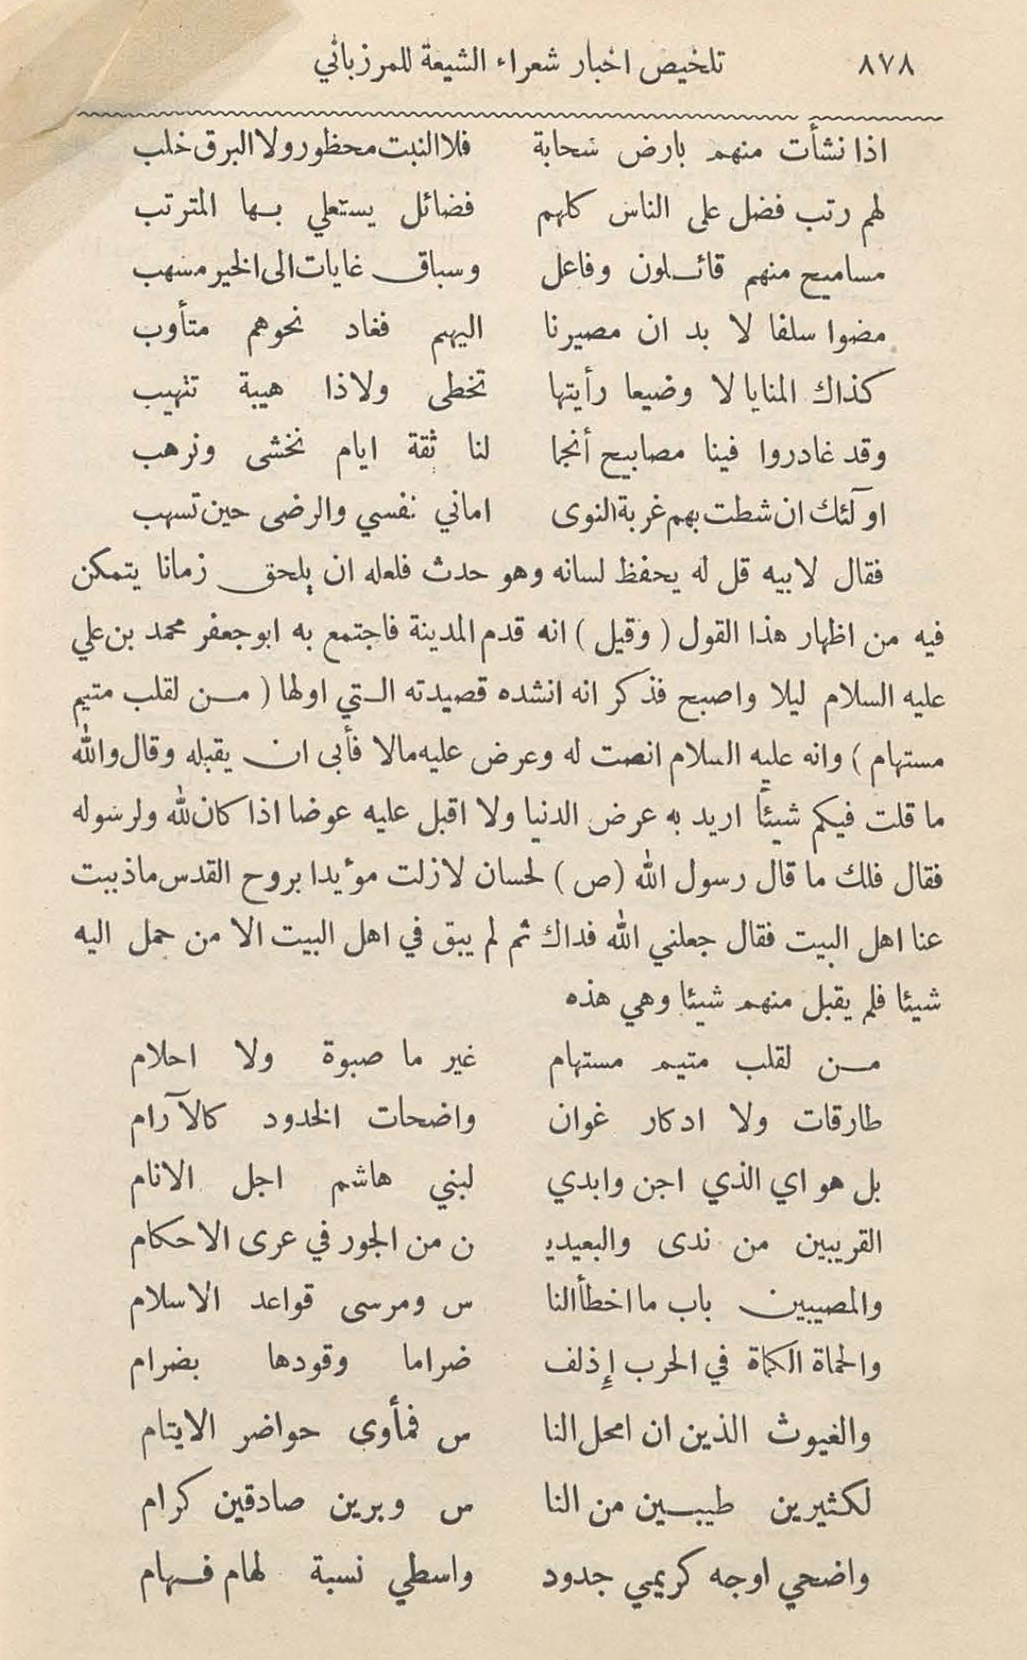 ٨٧٨ تلخيص اخبار شعراء الشيعة للمرزباني
اذا نشأت منهم بارض سحابة فلا النبت محظور ولا البرق خلب
لهم رتب فضل على الناس كلهم فضائل يستعلي بها المترتب
مساميح منهم قائلون وفاعل وسباق غايات الى الخير مسهب
مضوا سلفا لا بد ان مصيرنا اليهم فغاد نحوهم متأوب
كذاك المنايا لا وضيعا رأيتها تخطى ولا ذا هيبة تتهيب
وقد غادروا فينا مصابيح أنجما لنا ثقة ايام نخشى ونرهب
اولٓئك ان شطت بهم غربة النوى اماني نفسي والرضى حين تسهب
فقال لابيه قل له يحفظ لسانه وهو حدث فلعله ان يلحق زمانا يتمكن
فيه من اظهار هذا القول ( وقيل ) انه قدم المدينة فاجتمع به ابو جعفر محمد بن علي
عليه السلام ليلا واصبح فذكر انه انشده قصيدته التي اولها ( من لقلب متيم
مستهام ) وانه عليه السلام انصت له وعرض عليه مالا فأبى ان يقبله وقال والله
ما قلت فيكم شيئاً اريد به عرض الدنيا ولا اقبل عليه عوضا اذا كان لله ولرسوله
فقال فلك ما قال رسول الله (ص ) لحسان لا زلت موءيدا بروح القدس ما ذببت
عنا اهل البيت فقال جعلني الله فداك ثم لم يبق في اهل البيت الا من حمل اليه
شيئا فلم يقبل منهم شيئا وهي هذه
من لقلب متيم مستهام غير ما صبوة ولا احلام
طارقات ولا ادكار غوان واضحات الخدود كالآرام
بل هو اي الذي اجن وابدي لبني هاشم اجل الانام
القريبين من ندى والبعيديـ ن من الجور في عرى الاحكام
والمصيبين باب ما اخطأ النا س ومرسى قواعد الاسلام
والحماة الكماة في الحرب إذ لف ضراما وقودها بضرام
والغيوث الذين ان امحل النا س فمأوى حواضر الايتام
لكثيرين طيبين من النا س وبرين صادقين كرام
واضحي اوجه كريمي جدود واسطي نسبة لهام فهام